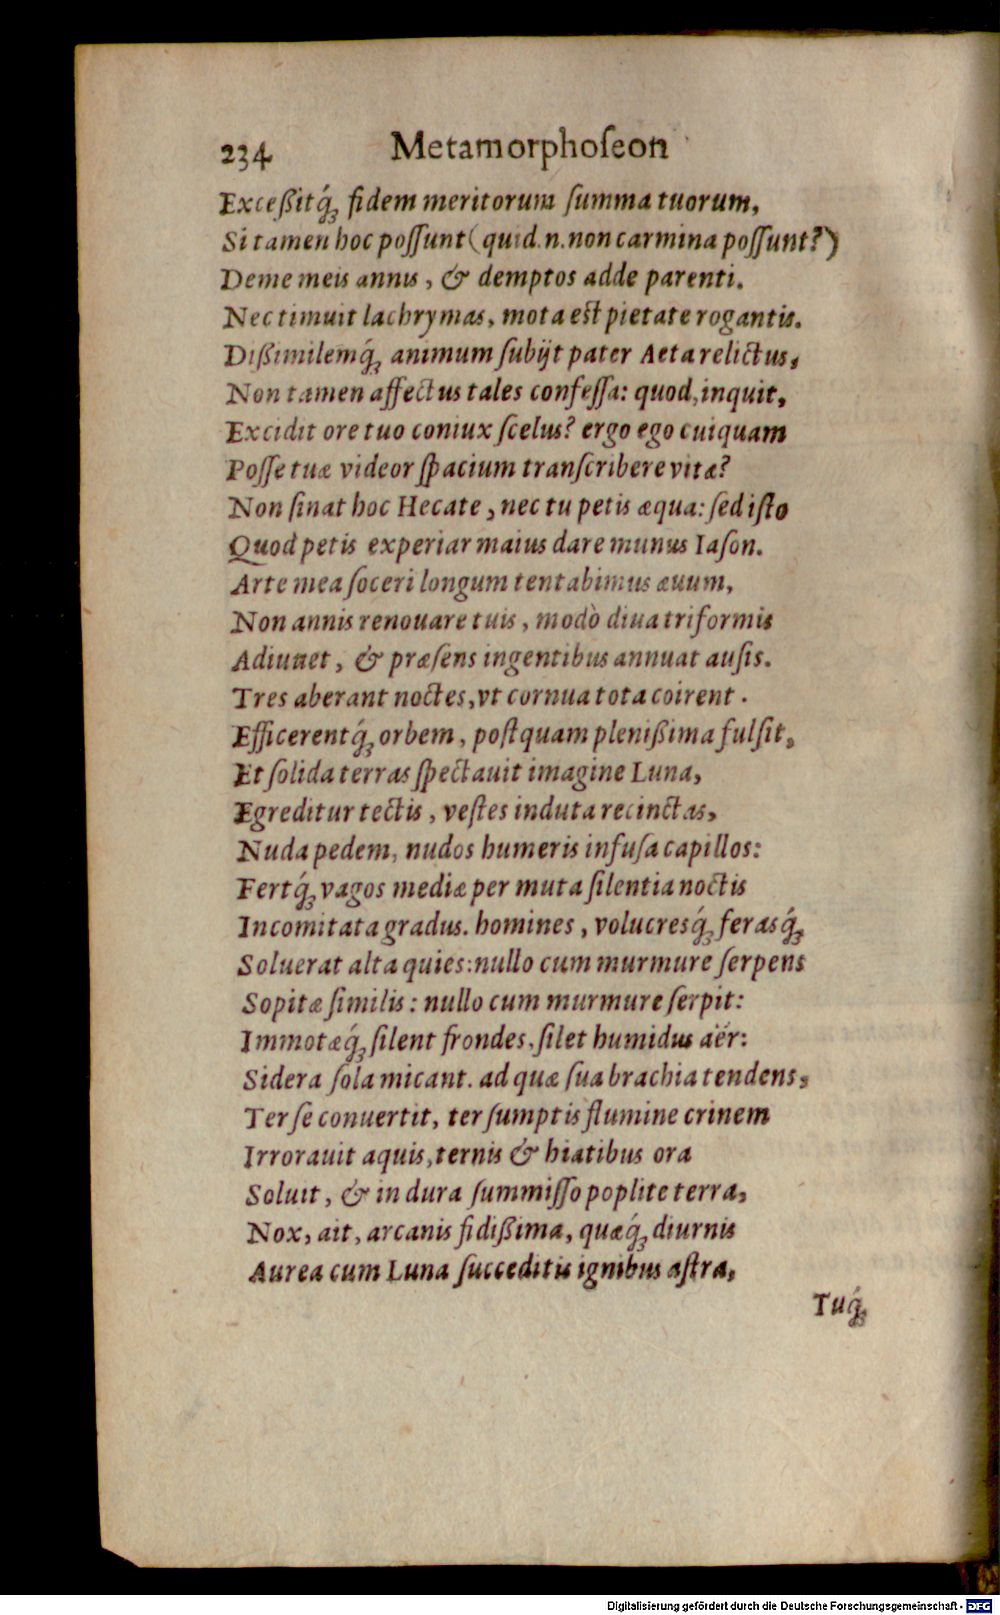 234 Metamorphoſeon
Exceßitq́ꝫ fidem meritorum ſumma tuorum,
Si tamen hoc poſſunt (quid.n.non carmina poſſunt?)
Deme meis annis, & demptos adde parenti.
Nec timuit lachrymas, mota est pietate rogantis.
Dißimilemq́ꝫ animum ſubijt pater Aeta relictus,
Non tamen affectus tales confeſſa: quod, inquit,
Excidit ore tuo coniux ſcelus? ergo ego cuiquam
Poſſe tuæ videor ſpacium tranſcribere vitæ?
Non ſinat hoc Hecate, nec tu petis æqua: ſed iſto
Quod petis experiar maius dare munus Iaſon.
Arte mea ſoceri longum tentabimus æuum,
Non annis renouare tuis, modò diua triformis
Adiunet, & præſens ingentibus annuat auſis.
Tres aberant noctes, vt cornua tota coirent.
Efficerentq́ꝫ orbem, poſtquam plenißima fulſit,
Et ſolida terras ſpectauit imagine Luna,
Egreditur tectis, veſtes induta recinctas,
Nuda pedem, nudos humeris infuſa capillos:
Fertq́ꝫ vagos mediæ per muta ſilentia noctis
Incomitata gradus. homines, volucresq́ꝫ ferasq́ꝫ
Soluerat alta quies: nullo cum murmure ſerpens
Sopitæ ſimilis: nullo cum murmure ſerpit:
Immotæq́ꝫ ſilent frondes, ſilet humidus aër:
Sidera ſola micant. ad quæ ſua brachia tendens,
Ter ſe conuertit, ter ſumptis flumine crinem
Irrorauit aquis, ternis & hiatibus ora
Soluit, & in dura ſummiſſo poplite terra,
Nox, ait, arcanis fidißima, quæq́ꝫ diurnis
Aurea cum Luna ſucceditis ignibus aſtra,
Tuq́ꝫ
Digitalisierung gefördert durch die Deutsche Forschungsgemeinschaft - DFG